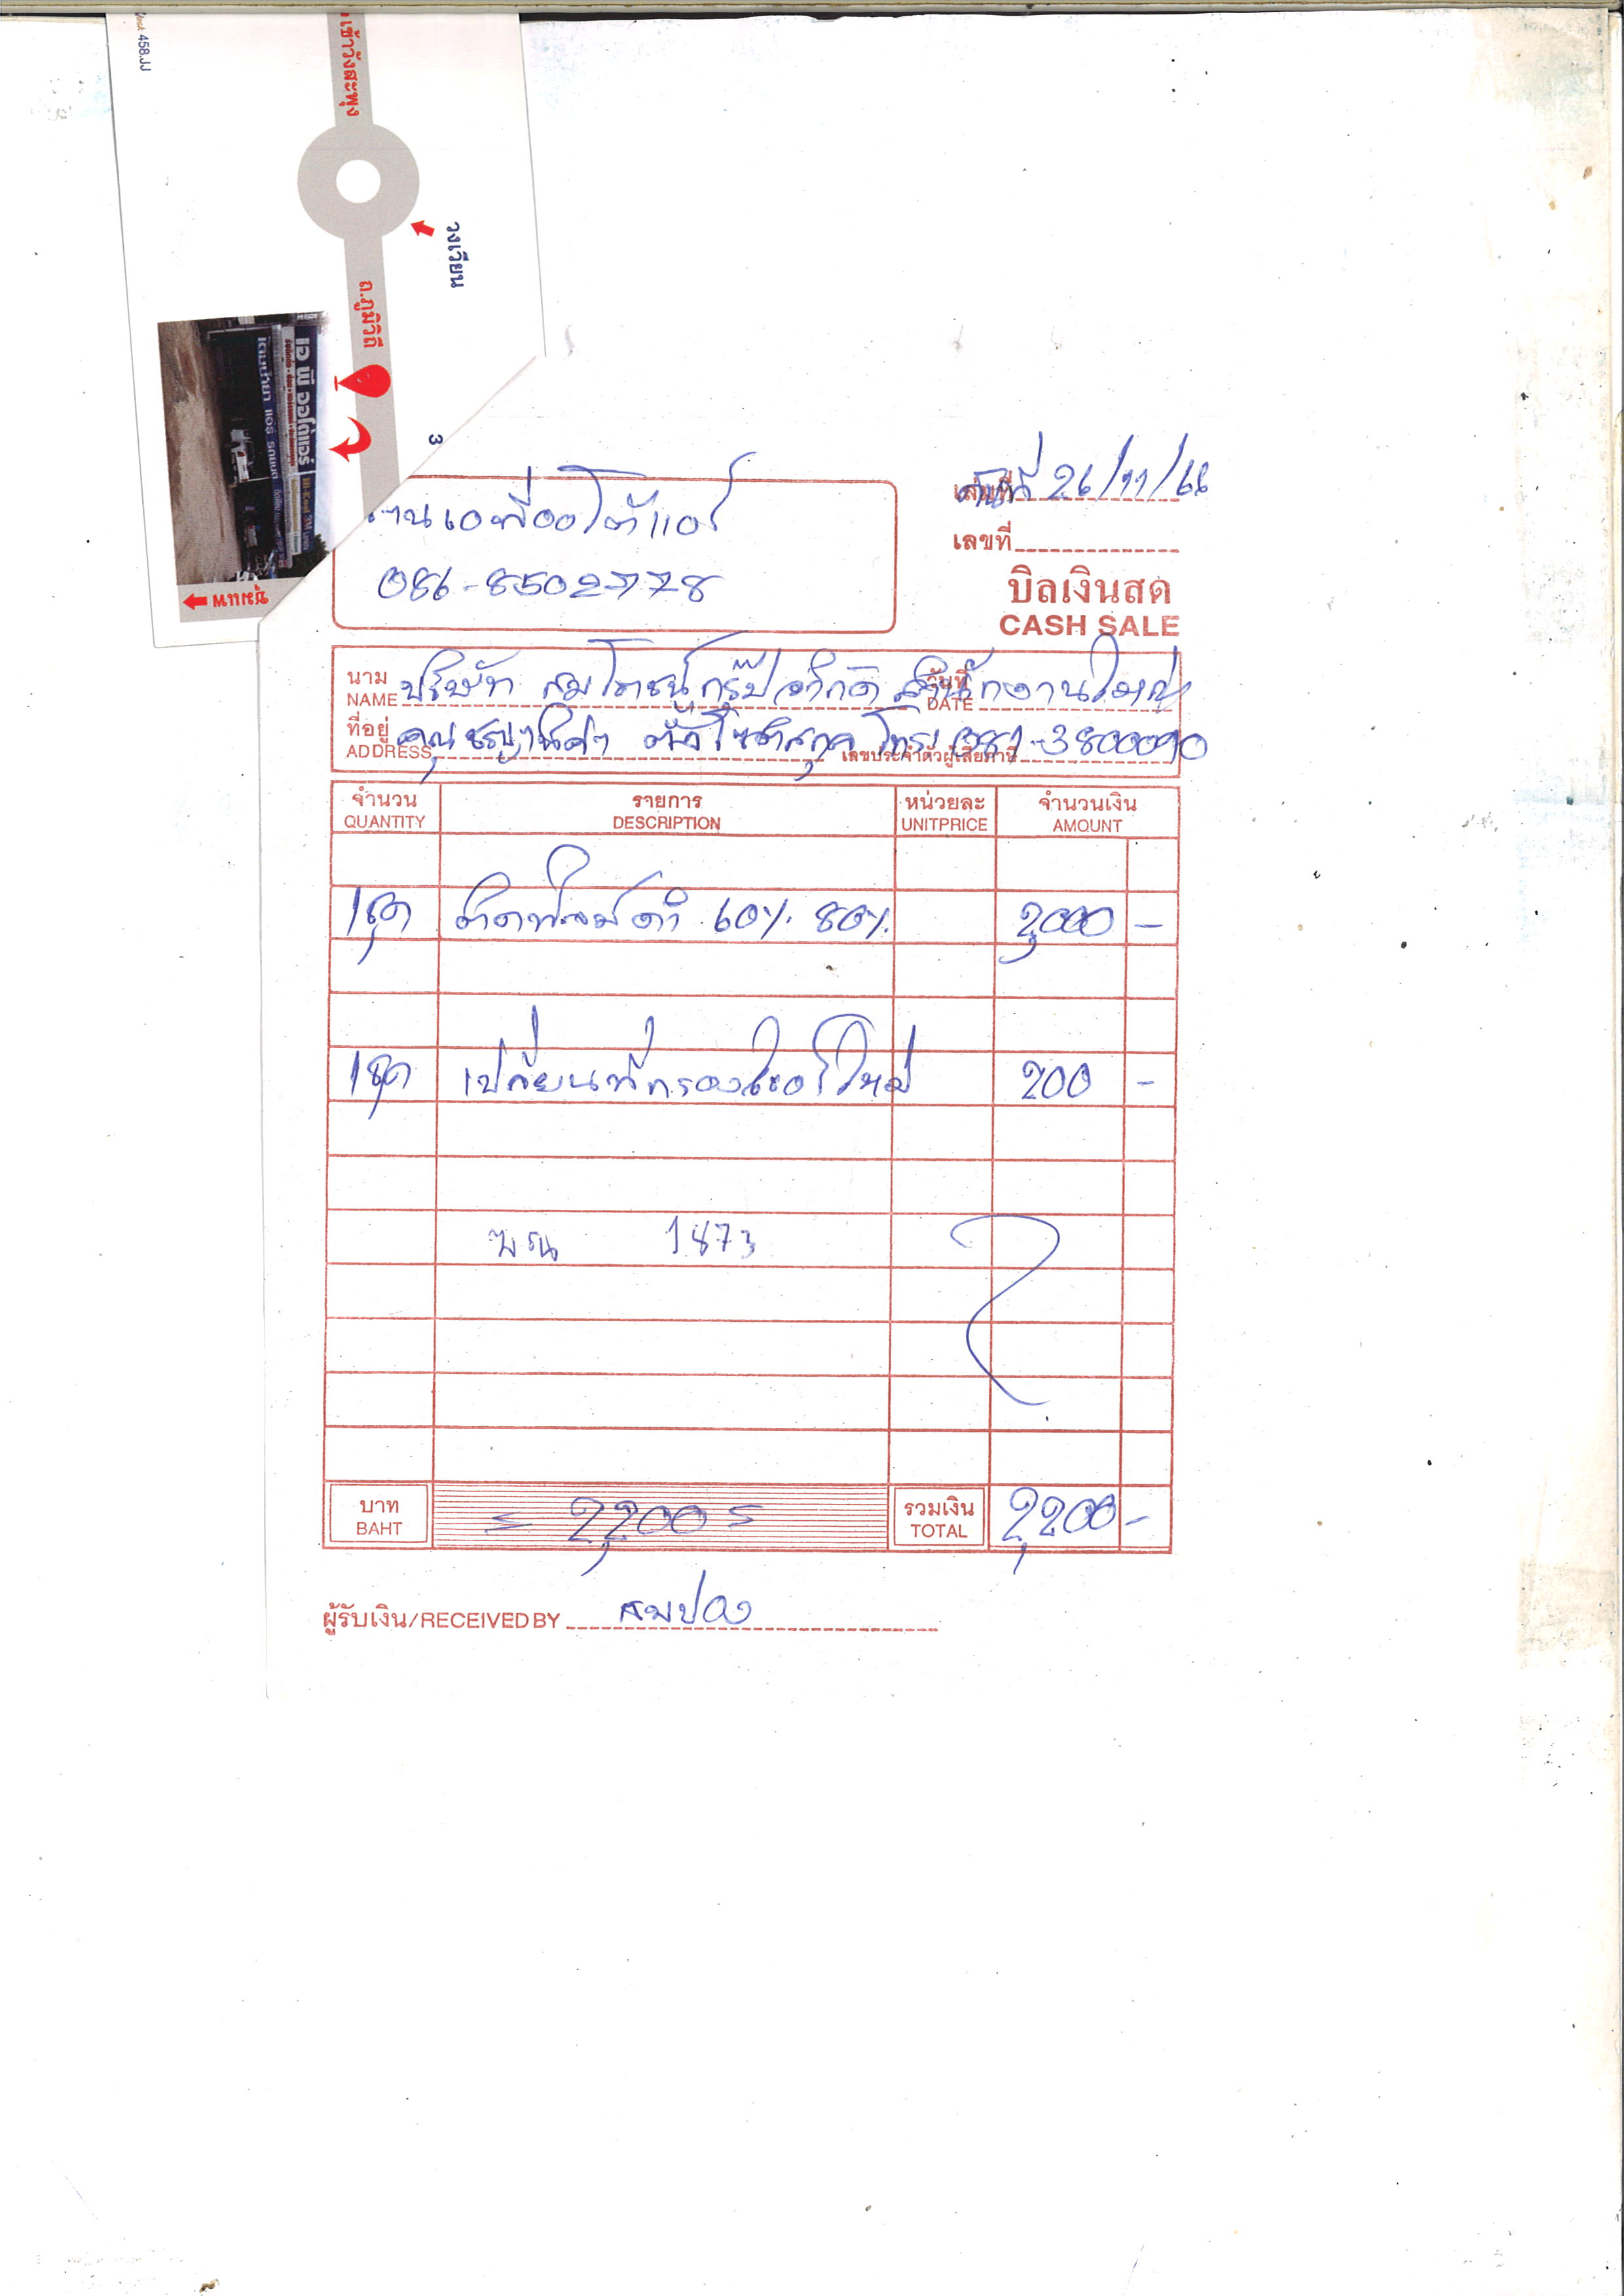 458.JJ
เข้าวังสะพุง
วงเวียน
ถ.ภูมิวิถี
เอ พี ออโต้แอร์
เติมน้ำยา แอร์ รถยนต์
ชุมแพ
3
เอพีออโต้แอร์
086-8502778
เล่มที่
วันที่ 26/11/66
เลขที่
บิลเงินสด
CASH SALE
นาม บริษัท สมโภชน์กรุ๊ป จำกัด สำนักงานใหญ่ วันที่
NAME DATE
ที่อยู่ คุณ โทร 081-3800090
ADDRESS เลขประจำตัวผู้เสียภาษี
จำนวน รายการ หน่วยละ จำนวนเงิน
QUANTITY DESCRIPTION UNITPRICE AMOUNT
1ชุด ติดฟิล์มดำ 60% 80% 2,000 -
1ชุด เปลี่ยนที่กรองแอร์ใหม่ 200 -
1873
บาท = 2,200 = รวมเงิน 2,200 -
BAHT TOTAL
ผู้รับเงิน/RECEIVED BY สมปอง